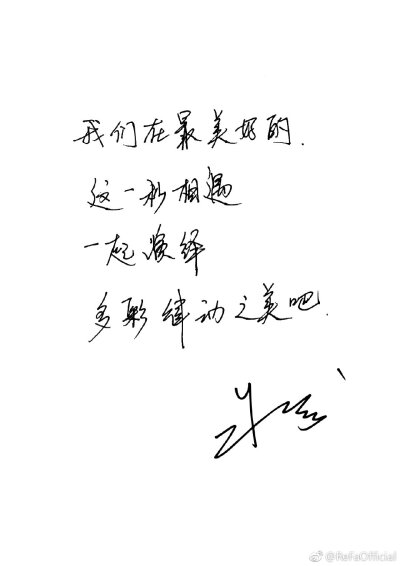 我们在最美好的.
这一秒相遇
一起演绎
多彩律动之美吧.
@ReFaOfficial